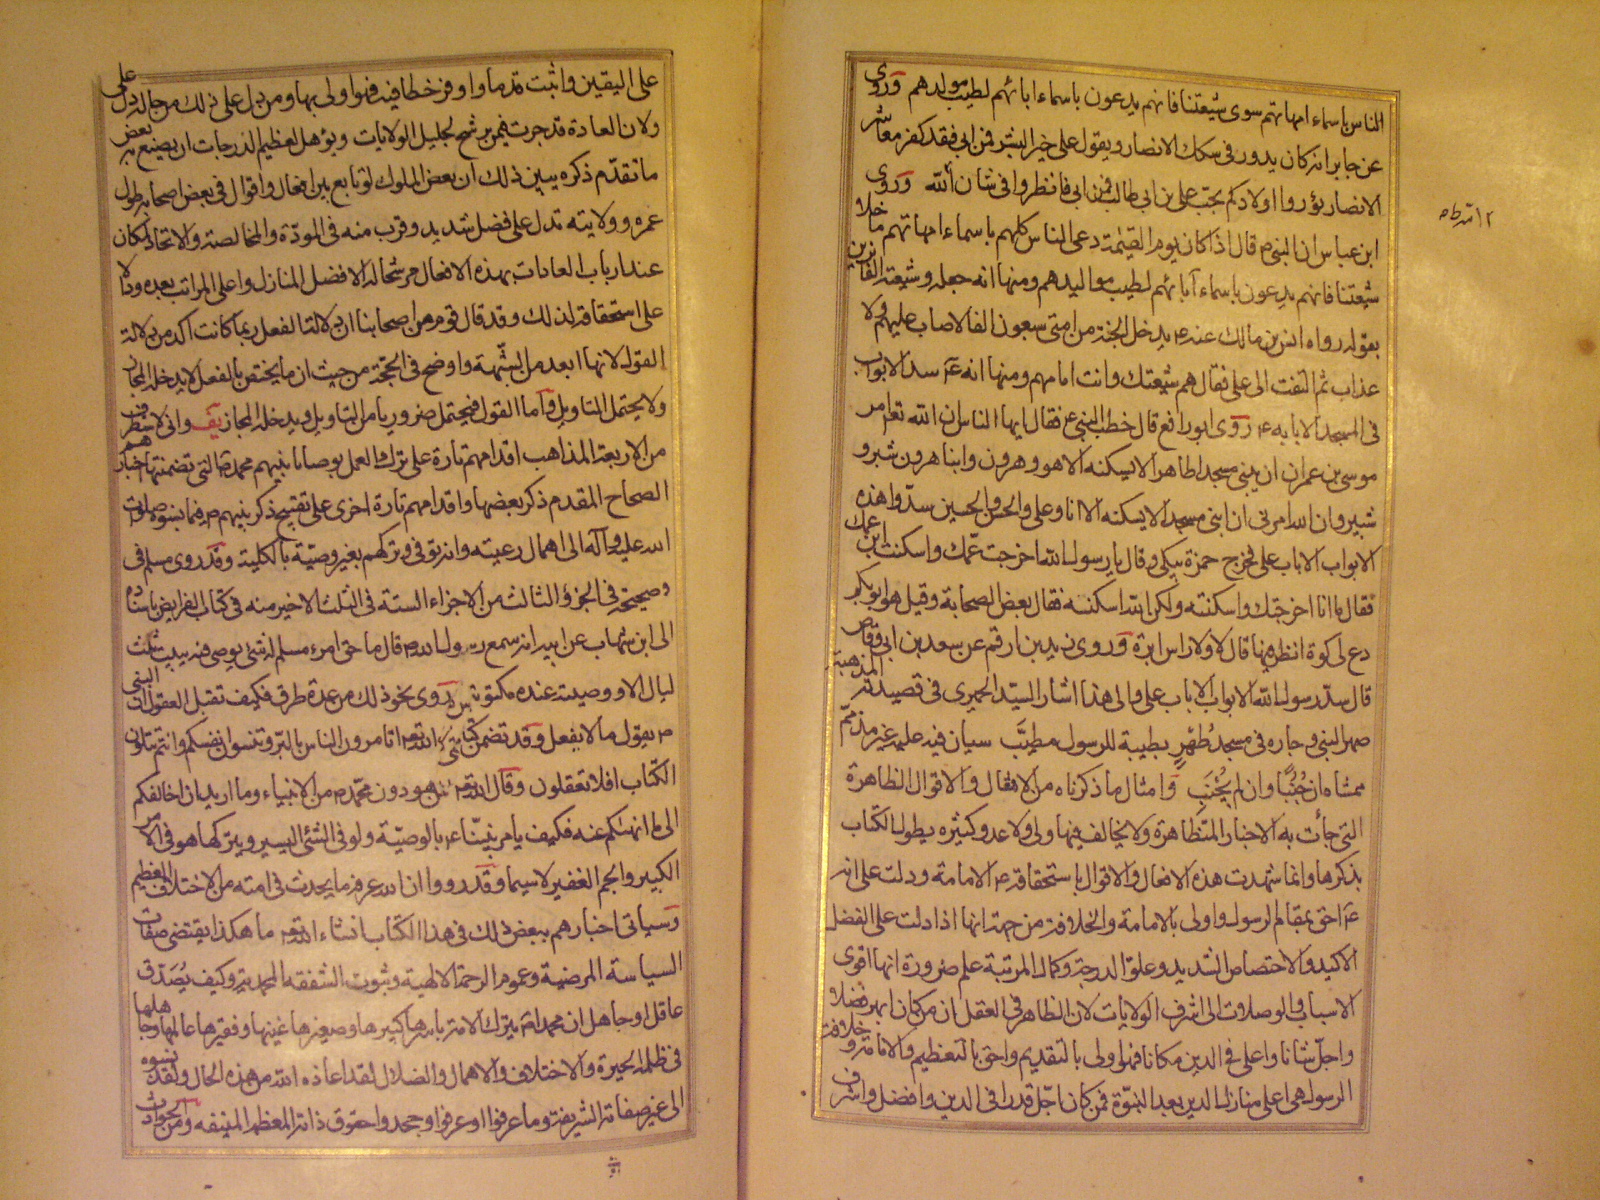 الناس باسماء امهاتهم سوى شيعتنا فانهم يدعون باسماء ابائهم لطيب مولدهم وروى
عن جابر انه كان يدور في سكك الانصار ويقول علي خير البشر فمن ابى فقد كفر معاشر
الانصار بوروا اولادكم بحب علي بن ابي طالب فمن ابى فانظروا في شان الله وروى
ابن عباس ان النبي ص قال اذا كان يوم القيمة دعى الناس كلهم باسماء امهاتهم ما خلا
شيعتنا فانهم يدعون باسماء آبائهم لطيب مواليدهم ومنها انه جعله وشيعته الفائزين
بقوله رواه انس بن مالك عنه ع يدخل الجنة من امتي سبعون الفا لا صاب عليهم ولا
عذاب ثم التفت الى علي فقال هم شيعتك وانت امامهم ومنها انه ع سد الابواب
في المسجد الا بابه ع روى ابو رافع قال خطب النبي ع فقال ايها الناس ان الله تع امر
موسى بن عمران ان يبني مسجدا طاهرا لا يسكنه الا هو وهرون وابنا هرون شبر و
شبير وان الله امرني ان ابني مسجدا لا يسكنه الا انا وعلي والحسن والحسين سدوا هذه
الابواب الا باب علي فخرج حمزة يبكي وقال يا رسول الله اخرجت عمك واسكنت ابن عمك
فقال ما انا اخرجتك واسكنته ولكن الله اسكنه فقال بعض الصحابة وقيل هو ابو بكر
دع لي كوة انظر فيها قال لا ولا راس ابرة وروى زيد بن ارقم عن سعد بن ابي وقاص
قال سد رسول الله الابواب الا باب علي والى هذا اشار السيد الحميري في قصيدته المذهبة
صهر النبي وجاره في مسجد طهر بطيبة للرسول مطيب سيان فيه عليه غير مذمم
ممشاه ان جنبا وان لم يجنب وامثال ما ذكرناه من الافعال والاقوال الظاهرة
التي جاءت به الاخبار المتظاهرة ولا يخالف فيها ولي ولا عدو وكثيره يطول الكتاب
بذكرها وانما شهدت هذه الافعال والاقوال باستحقاقه ع الامامة ودلت على انه
ع احق بمقام الرسول واولى بالامامة والخلافة من جهة انها اذا دلت على الفضل
الاكيد والاختصاص الشديد وعلو الدرجة وكمال المرتبة علم ضرورة انها اقوى
الاسباب والوصلات الى اشرف الولايات لان الظاهر في العقل ان من كان ابهر فضلا
واجل شانا واعلى في الدين مكانا فهو اولى بالتقديم واحق بالتعظيم والامامة وخلافة
الرسول هي اعلى منازل الدين بعد النبوة فمن كان اجل قدرا في الدين وافضل واشرف
على اليقين واثبت قدما واوفر حظا فيه فهو اولى بها ومن دل على ذلك من حاله دل على
ولان العادة قد جرت فيمن يرشح لجليل الولايات ويؤهل لعظيم الدرجات ان يصنع به بعض
ما تقدم ذكره يبين ذلك ان بعض الملوك لو تابع بين افعال واقوال في بعض اصحابه طول
عمره وولايته تدل على فضل شديد وقرب منه في المودة والمخالصة والاتحاد لكان
عند ارباب العادات بهذه الافعال مرشحا له لافضل المنازل واعلى المراتب بعده ودالا
على استحقاقه لذلك وقد قال قوم من اصحابنا ان دلالة الفعل ربما كانت آكد من دلالة
القول لانها ابعد من الشبهة واوضح في الحجة من حيث ان ما يختص بالفعل لا يدخله المجاز
ولا يحتمل التاويل واما القول فيحتمل ضروبا من التاويل ويدخله المجاز واني لاستطرف
من الاربعة المذاهب اقدامهم تارة على ترك العمل بوصايا نبيهم محمد ص التي تضمنتها اخبارهم
الصحاح المقدم ذكر بعضها واقدامهم تارة اخرى على تقبيح ذكر نبيهم ص فيما نسبوه صلوات
الله عليه وآله الى اهمال رعيته وانه توفي وتركهم بغير وصية بالكلية وقد روى مسلم في
صحيحه في الجزؤ الثالث من الاجزاء الستة في الثلث الاخير منه في كتاب الفرايض باسناده
الى ابن شهاب عن ابيه انه سمع رسول الله ص قال ما حق امرء مسلم له شئ يوصي فيه يبيت ثلث
ليال الا ووصيته عنده مكتوبة وروى نحو ذلك من عدة طرق فكيف تقبل العقول ان النبي
ص يقول ما لا يفعل وقد تضمن كتاب الله تع اتامرون الناس بالبر وتنسون انفسكم وانتم تتلون
الكتاب افلا تعقلون وقال الله تع عن هود ودون محمد ص من الانبياء وما اريد ان اخالفكم
الى ما انهىكم عنه فكيف يامر نبينا ع بالوصية ولو في الشئ اليسير ويتركها هو في الامر
الكبير والجم الغفير لاسيما وقد رووا ان الله عرفه ما يحدث في امته من الاختلاف العظيم
وسياتي اخبارهم ببعض ذلك في هذا الكتاب انشاء الله تع ما هكذا يقتضي صفات
السياسة المرضية وعموم الرحمة الالهية وثبوت الشفقة المحمدية وكيف يصدق
عاقل او جاهل ان محمدا ص يترك الامة باسرها كبيرها وصغيرها غنيها وفقيرها عالمها وجاهلها
في ظلمة الحيرة والاختلاف والاهمال والضلال لقد اعاذه الله من هذه الحال ولقد نسبوه
الى غير صفاته الشريفة وما عرفوا او عرفوا وجحدوا حقوق ذاته المعظمة المنيفة ومن الحوادث